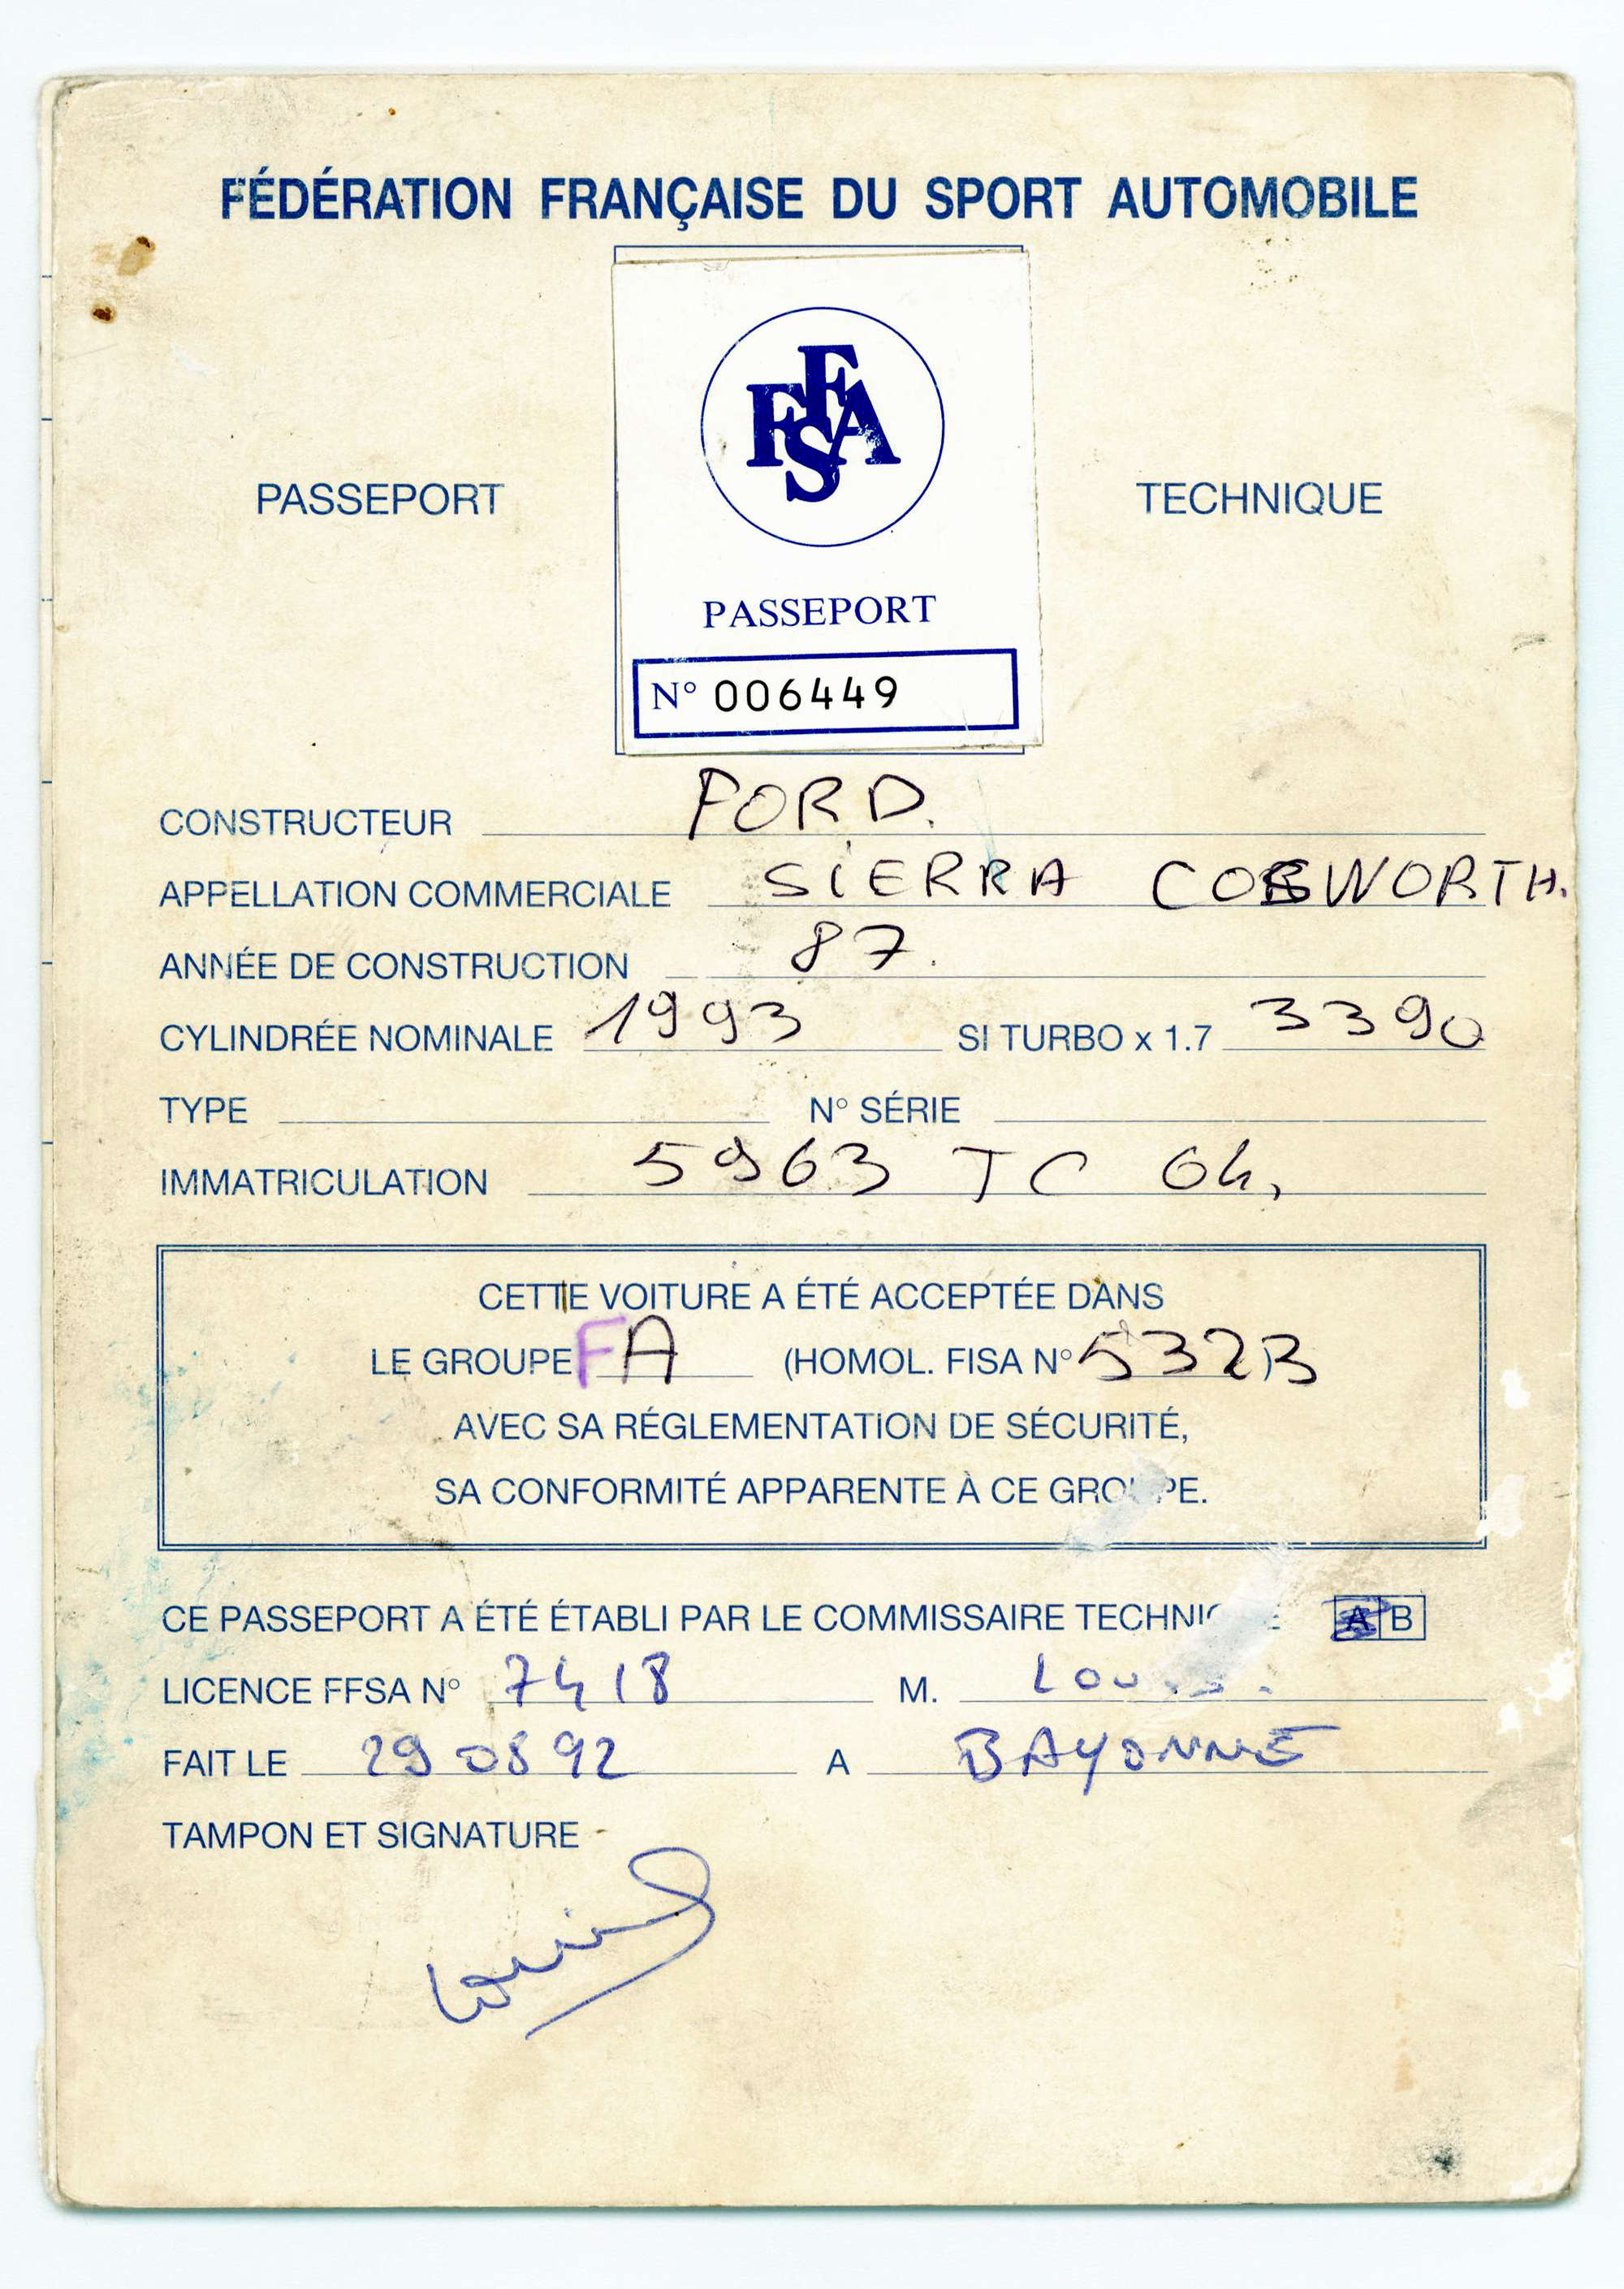 FÉDÉRATION FRANÇAISE DU SPORT AUTOMOBILE
FFSA
PASSEPORT TECHNIQUE
PASSEPORT
N° 006449
CONSTRUCTEUR FORD.
APPELLATION COMMERCIALE SIERRA COSWORTH.
ANNÉE DE CONSTRUCTION 87.
CYLINDRÉE NOMINALE 1993 SI TURBO x 1.7 3390
TYPE N° SÉRIE
IMMATRICULATION 5963 TC 64,
CETTE VOITURE A ÉTÉ ACCEPTÉE DANS
LE GROUPE FA (HOMOL. FISA N° 5323)
AVEC SA RÉGLEMENTATION DE SÉCURITÉ,
SA CONFORMITÉ APPARENTE À CE GROUPE.
CE PASSEPORT A ÉTÉ ÉTABLI PAR LE COMMISSAIRE TECHNIQUE A B
LICENCE FFSA N° 7418 M.
FAIT LE 29 08 92 A BAYONNE
TAMPON ET SIGNATURE